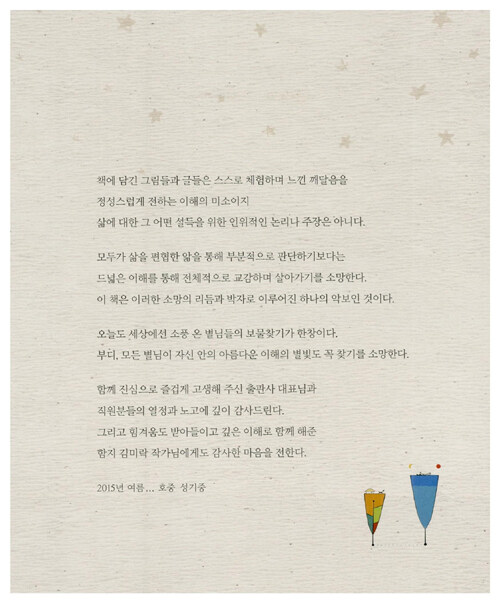 책에 담긴 그림들과 글들은 스스로 체험하며 느낀 깨달음을
정성스럽게 전하는 이해의 미소이지
삶에 대한 그 어떤 설득을 위한 인위적인 논리나 주장은 아니다.
모두가 삶을 편협한 앎을 통해 부분적으로 판단하기보다는
드넓은 이해를 통해 전체적으로 교감하며 살아가기를 소망한다.
이 책은 이러한 소망의 리듬과 박자로 이루어진 하나의 악보인 것이다.
오늘도 세상에선 소풍 온 별님들의 보물찾기가 한창이다.
부디, 모든 별님이 자신 안의 아름다운 이해의 별빛도 꼭 찾기를 소망한다.
함께 진심으로 즐겁게 고생해 주신 출판사 대표님과
직원분들의 열정과 노고에 깊이 감사드린다.
그리고 힘겨움도 받아들이고 깊은 이해로 함께 해준
함지 김미락 작가님에게도 감사한 마음을 전한다.
2015년 여름... 호중 성기중